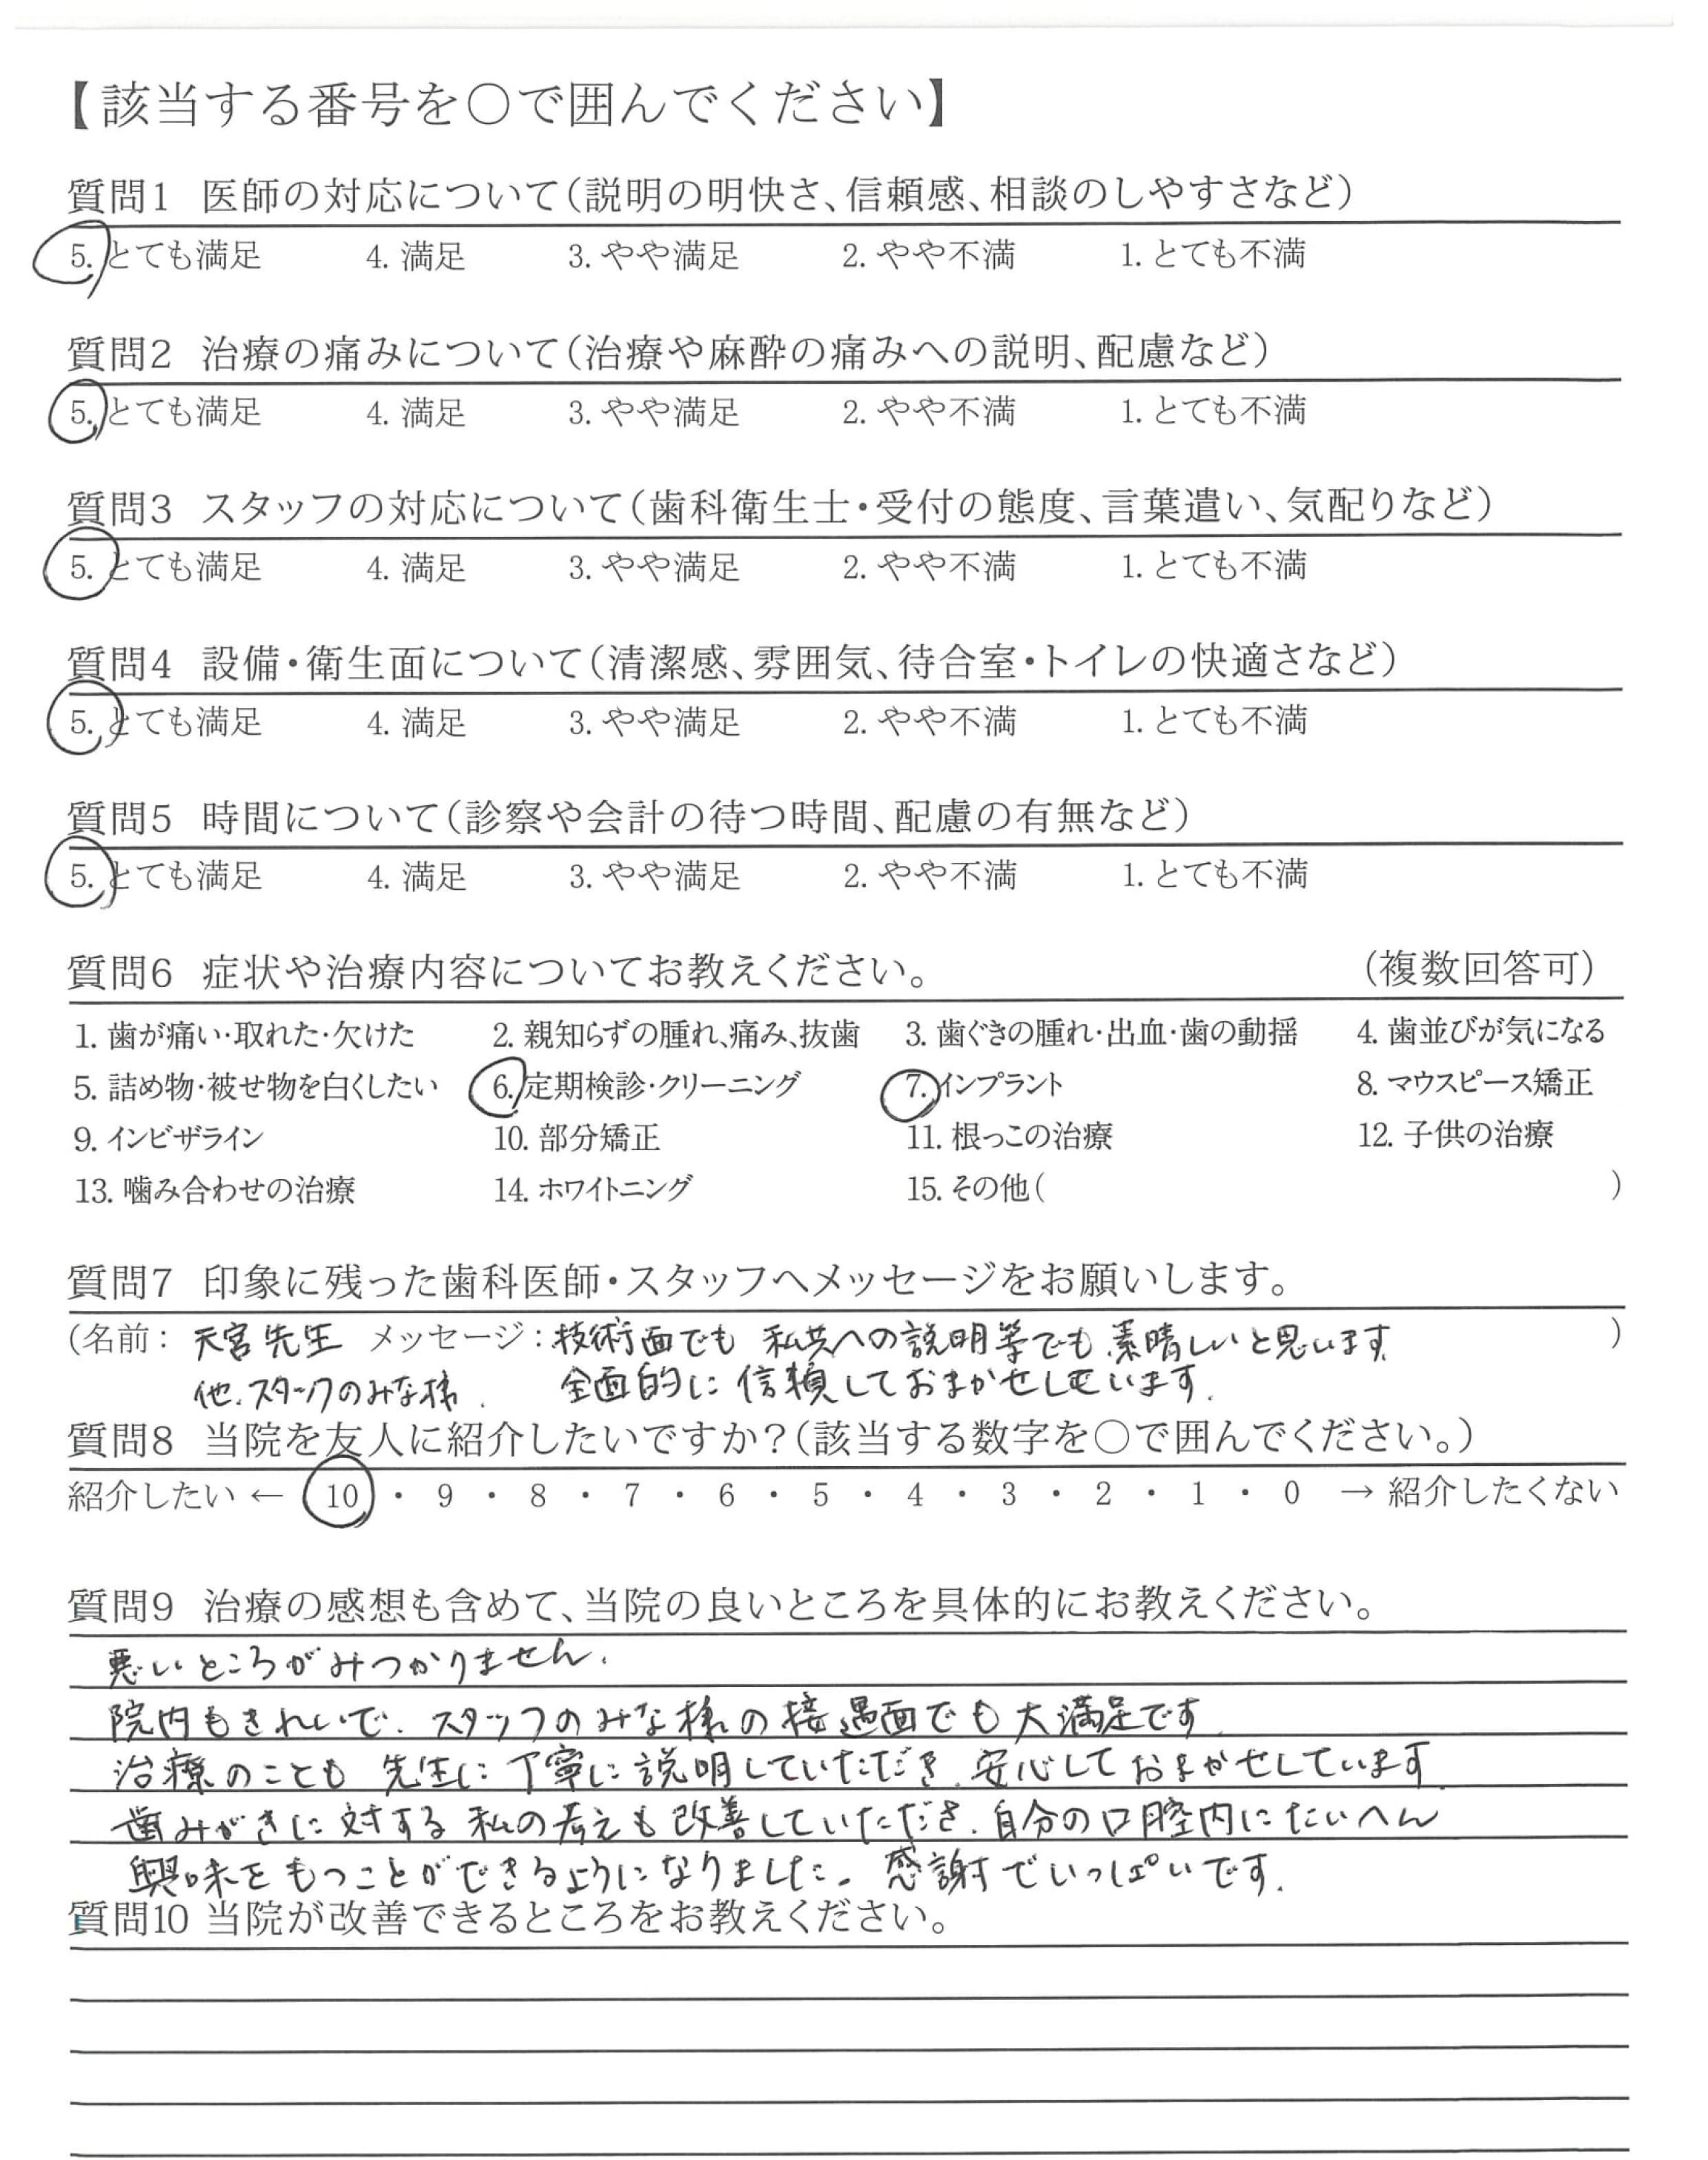 【該当する番号を○で囲んでください】
質問1 医師の対応について(説明の明快さ、信頼感、相談のしやすさなど)
5. とても満足 4. 満足 3. やや満足 2. やや不満 1. とても不満
質問2 治療の痛みについて(治療や麻酔の痛みへの説明、配慮など)
5. とても満足 4. 満足 3. やや満足 2. やや不満 1. とても不満
質問3 スタッフの対応について(歯科衛生士・受付の態度、言葉遣い、気配りなど)
5. とても満足 4. 満足 3. やや満足 2. やや不満 1. とても不満
質問4 設備・衛生面について(清潔感、雰囲気、待合室・トイレの快適さなど)
5. とても満足 4. 満足 3. やや満足 2. やや不満 1. とても不満
質問5 時間について(診察や会計の待つ時間、配慮の有無など)
5. とても満足 4. 満足 3. やや満足 2. やや不満 1. とても不満
質問6 症状や治療内容についてお教えください。 (複数回答可)
1. 歯が痛い・取れた・欠けた 2. 親知らずの腫れ、痛み、抜歯 3. 歯ぐきの腫れ・出血・歯の動揺 4. 歯並びが気になる
5. 詰め物・被せ物を白くしたい 6. 定期検診・クリーニング 7. インプラント 8. マウスピース矯正
9. インビザライン 10. 部分矯正 11. 根っこの治療 12. 子供の治療
13. 噛み合わせの治療 14. ホワイトニング 15. その他( )
質問7 印象に残った歯科医師・スタッフへメッセージをお願いします。
(名前: 天宮先生 メッセージ: 技術面でも 私共への説明等でも、素晴しいと思います )
他、スタッフのみな様. 全面的に信頼しておまかせしています.
質問8 当院を友人に紹介したいですか?(該当する数字を○で囲んでください。)
紹介したい ← 10 ・ 9 ・ 8 ・ 7 ・ 6 ・ 5 ・ 4 ・ 3 ・ 2 ・ 1 ・ 0 → 紹介したくない
質問9 治療の感想も含めて、当院の良いところを具体的にお教えください。
悪いところがみつかりません.
院内もきれいで、スタッフのみな様の接遇面でも大満足です.
治療のことも 先生に丁寧に説明していただき、安心しておまかせしています.
歯みがきに対する私の考えも改善していただき、自分の口腔内にたいへん
興味をもつことができるようになりました。感謝でいっぱいです.
質問10 当院が改善できるところをお教えください。